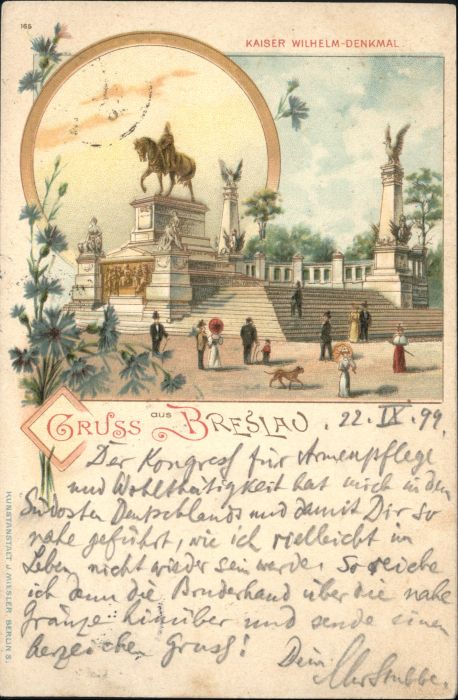 165
KAISER WILHELM-DENKMAL.
GRUSS aus BRESLAU. 22. IX. 99.
Der Kongress für Armenpflege
und Wohlthätigkeit hat mich in den
Südosten Deutschlands und damit Dir so
nahe geführt, wie ich vielleicht im
Leben nicht wieder sein werde. So reiche
ich denn die Bruderhand über die nahe
Gränze hinüber und sende einen
herzlichen Gruss!
Dein
KUNSTANSTALT J. MIESLER, BERLIN S.